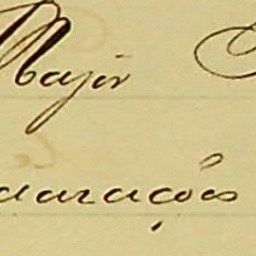 Major
arações